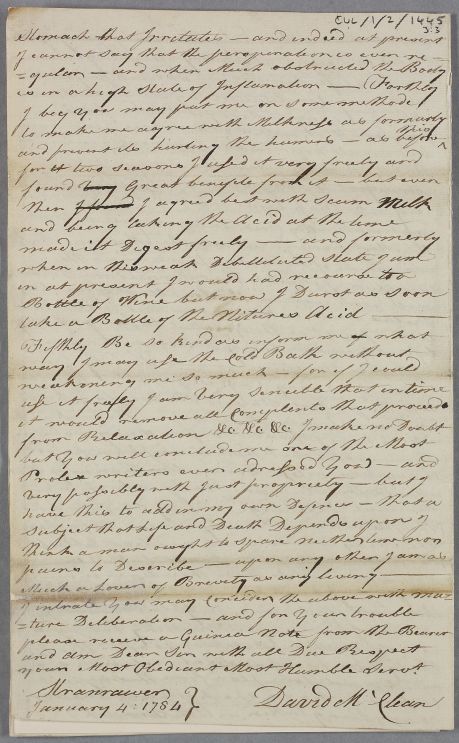 CUL/1/2/1445
J:3
Stomach that Irritates — and indeed at present
I cannot say that the perspiration is even re-
=gular — and when Much obstructed the Body
is in a high State of Inflamation — (Forthly
I beg You may put me on some methode
to make me agree with Milkness as formerly
and prevent its hurting the humors — as before this
for it two seasons I used it very freely and
found Great benefite from it — but even
then I agreed best with Scum Milk
and being taking the Acid at the time
made it Digest freely — and formerly
when in the weak Debilitated State I am
in at present I would had recourse to a
Bottle of Wine but now I Durst as soon
take a Bottle of the Nitures Acid —
(Fifthly Be so kind as inform me what
way I may use the Cold Bath without
weakening me so much — for if I could
use it freely I am very sencible that in time
it would remove all Complents that proceed
from Relaxation &c &c &c I make no Doubt
but You will conclude me one of the Most
Prolex writers ever adressed You — and
very possibly with Just propriety — but I
have this to add in my own Defence — that a
Subject that Life and Death Depends upon I
think a man ought to spare neither time nor
pains to Describe — upon any other I am as
Much a Lover of Brevity as any living —
I intrate You may consider the above with ma-
=ture Deliberation — and for Your trouble
please receive a Guinea Note from the Bearer
and am Dear Sir with all Due Respect
your Most Obediant Most Humble Servt.
Stranrawer
January 4: 1784 }
David Mc Clean